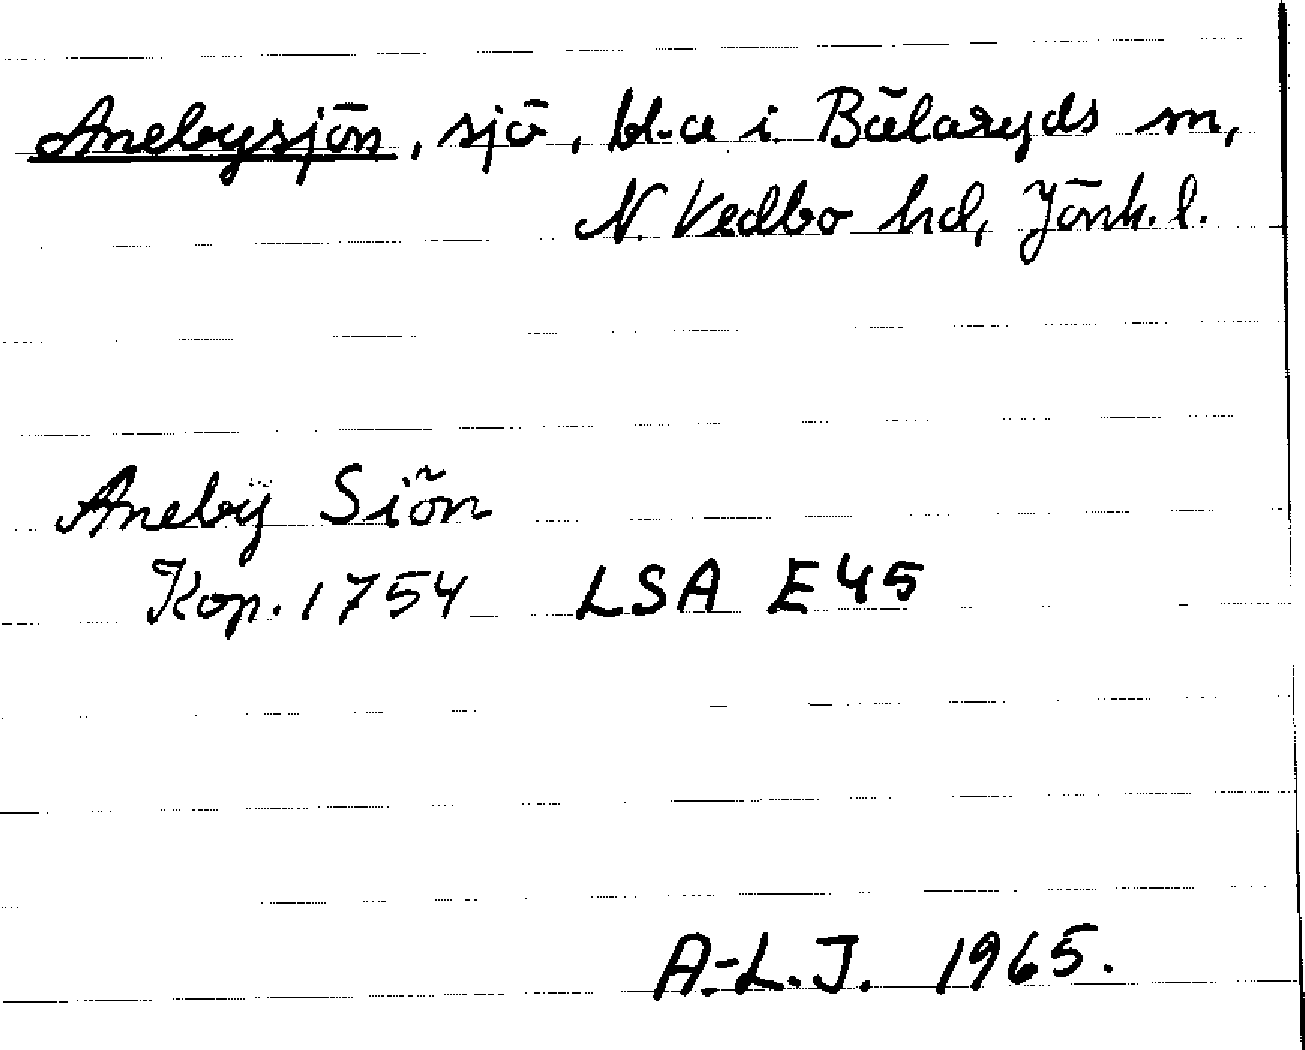 Anebysjön, sjö, bl.a i Bälaryds sn,
N. Vedbo hd, Jönk. l.
Anebÿ Siön
Kop. 1754 LSA E45
A.-L.J. 1965.